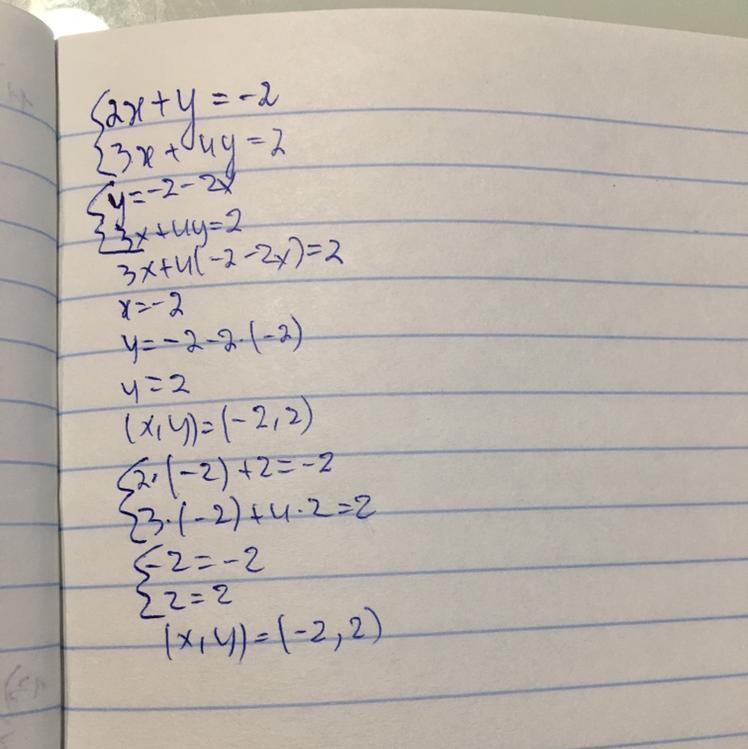 {2x+y=-2
{3x+4y=2
{y=-2-2x
{3x+4y=2
3x+4(-2-2x)=2
x=-2
y=-2-2·(-2)
y=2
(x,y)=(-2,2)
{2·(-2)+2=-2
{3·(-2)+4·2=2
{-2=-2
{2=2
(x,y)=(-2,2)